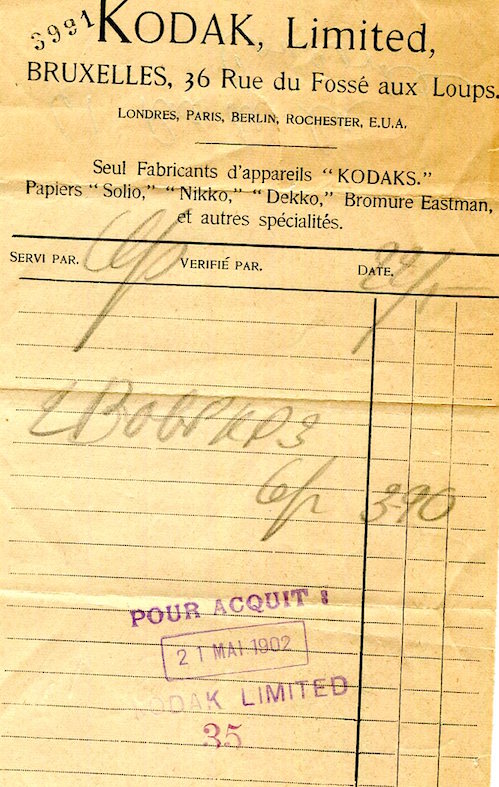 3991
KODAK, Limited,
BRUXELLES, 36 Rue du Fossé aux Loups.
LONDRES, PARIS, BERLIN, ROCHESTER, E.U.A.
Seul Fabricants d'appareils "KODAKS."
Papiers "Solio," "Nikko," "Dekko," Bromure Eastman,
et autres spécialités.
SERVI PAR. VERIFIÉ PAR. DATE.
2 Bob
390
POUR ACQUIT :
21 MAI 1902
KODAK LIMITED
35